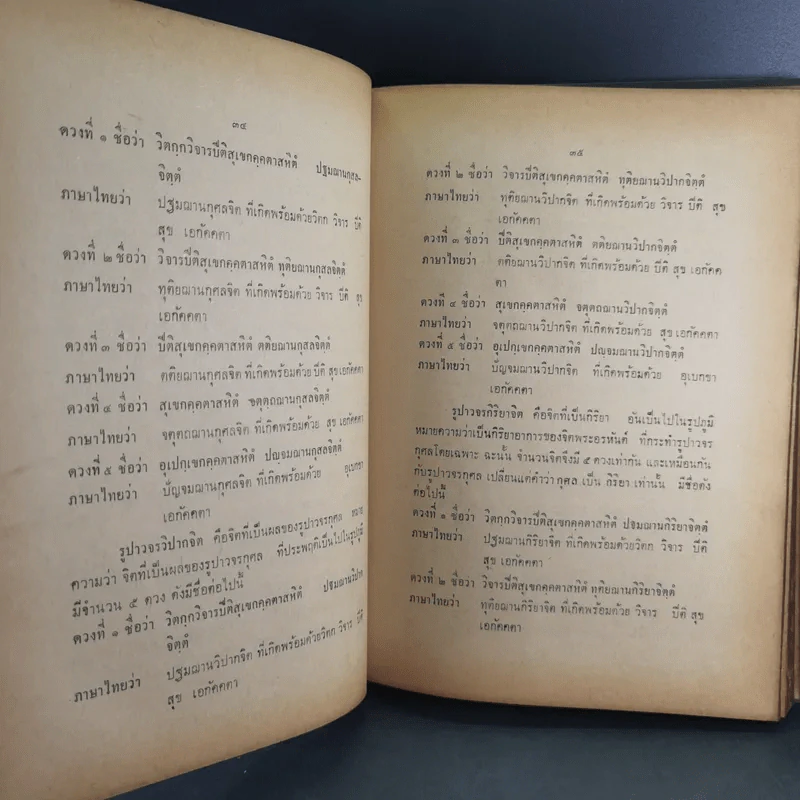 ๓๔
ดวงที่ ๑ ชื่อว่า วิตกฺกวิจารปีติสุเขกคฺคตาสหิตํ ปฐมฌานกุสล-
จิตฺตํ
ภาษาไทยว่า ปฐมฌานกุศลจิต ที่เกิดพร้อมด้วยวิตก วิจาร ปีติ
สุข เอกัคคตา
ดวงที่ ๒ ชื่อว่า วิจารปีติสุเขกคฺคตาสหิตํ ทุติยฌานกุสลจิตฺตํ
ภาษาไทยว่า ทุติยฌานกุศลจิต ที่เกิดพร้อมด้วย วิจาร ปีติ สุข
เอกัคคตา
ดวงที่ ๓ ชื่อว่า ปีติสุเขกคฺคตาสหิตํ ตติยฌานกุสลจิตฺตํ
ภาษาไทยว่า ตติยฌานกุศลจิต ที่เกิดพร้อมด้วย ปีติ สุข เอกัคคตา
ดวงที่ ๔ ชื่อว่า สุเขกคฺคตาสหิตํ จตุตฺถฌานกุสลจิตฺตํ
ภาษาไทยว่า จตุตถฌานกุศลจิต ที่เกิดพร้อมด้วย สุข เอกัคคตา
ดวงที่ ๕ ชื่อว่า อุเปกฺเขกคฺคตาสหิตํ ปญฺจมฌานกุสลจิตฺตํ
ภาษาไทยว่า ปัญจมฌานกุศลจิต ที่เกิดพร้อมด้วย อุเบกขา
เอกัคคตา
รูปาวจรวิปากจิต คือจิตที่เป็นผลของรูปาวจรกุศล หมาย
ความว่า จิตที่เป็นผลของรูปาวจรกุศล ที่ประพฤติเป็นไปในรูปภูมิ
มีจำนวน ๕ ดวง ดังมีชื่อต่อไปนี้
ดวงที่ ๑ ชื่อว่า วิตกฺกวิจารปีติสุเขกคฺคตาสหิตํ ปฐมฌานวิปาก
จิตฺตํ
ภาษาไทยว่า ปฐมฌานวิปากจิต ที่เกิดพร้อมด้วยวิตก วิจาร ปีติ
สุข เอกัคคตา
๓๕
ดวงที่ ๒ ชื่อว่า วิจารปีติสุเขกคฺคตาสหิตํ ทุติยฌานวิปากจิตฺตํ
ภาษาไทยว่า ทุติยฌานวิปากจิต ที่เกิดพร้อมด้วย วิจาร ปีติ สุข
เอกัคคตา
ดวงที่ ๓ ชื่อว่า ปีติสุเขกคฺคตาสหิตํ ตติยฌานวิปากจิตฺตํ
ภาษาไทยว่า ตติยฌานวิปากจิต ที่เกิดพร้อมด้วย ปีติ สุข เอกัคค
ตา
ดวงที่ ๔ ชื่อว่า สุเขกคฺคตาสหิตํ จตุตฺถฌานวิปากจิตฺตํ
ภาษาไทยว่า จตุตถฌานวิปากจิต ที่เกิดพร้อมด้วย สุข เอกัคคตา
ดวงที่ ๕ ชื่อว่า อุเปกฺเขกคฺคตาสหิตํ ปญฺจมฌานวิปากจิตฺตํ
ภาษาไทยว่า ปัญจมฌานวิปากจิต ที่เกิดพร้อมด้วย อุเบกขา
เอกัคคตา
รูปาวจรกิริยาจิต คือจิตที่เป็นกิริยา อันเป็นไปในรูปภูมิ
หมายความว่าเป็นกิริยาอาการของจิตพระอรหันต์ ที่กระทำรูปาวจร
กุศลโดยเฉพาะ ฉะนั้น จำนวนจิตจึงมี ๕ ดวงเท่ากัน และเหมือนกัน
กับรูปาวจรกุศล เปลี่ยนแต่คำว่า กุศล เป็น กิริยา เท่านั้น มีชื่อดัง
ต่อไปนี้
ดวงที่ ๑ ชื่อว่า วิตกฺกวิจารปีติสุเขกคฺคตาสหิตํ ปฐมฌานกิริยาจิตฺตํ
ภาษาไทยว่า ปฐมฌานกิริยาจิต ที่เกิดพร้อมด้วยวิตก วิจาร ปีติ
สุข เอกัคคตา
ดวงที่ ๒ ชื่อว่า วิจารปีติสุเขกคฺคตาสหิตํ ทุติยฌานกิริยาจิตฺตํ
ภาษาไทยว่า ทุติยฌานกิริยาจิต ที่เกิดพร้อมด้วย วิจาร ปีติ สุข
เอกัคคตา